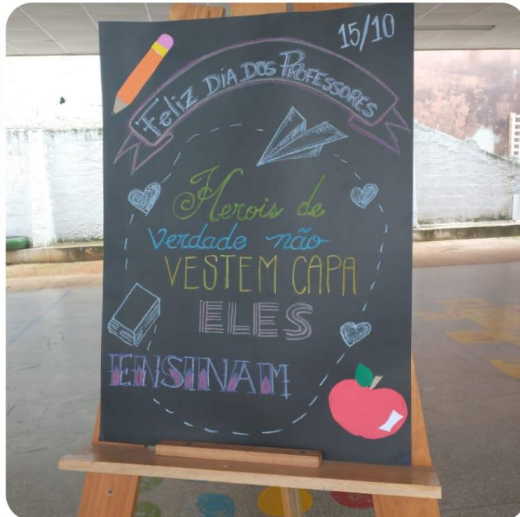 15/10
Feliz DIA DOS PROFESSORES
Herois de
Verdade não
VESTEM CAPA
ELES
ENSINAM